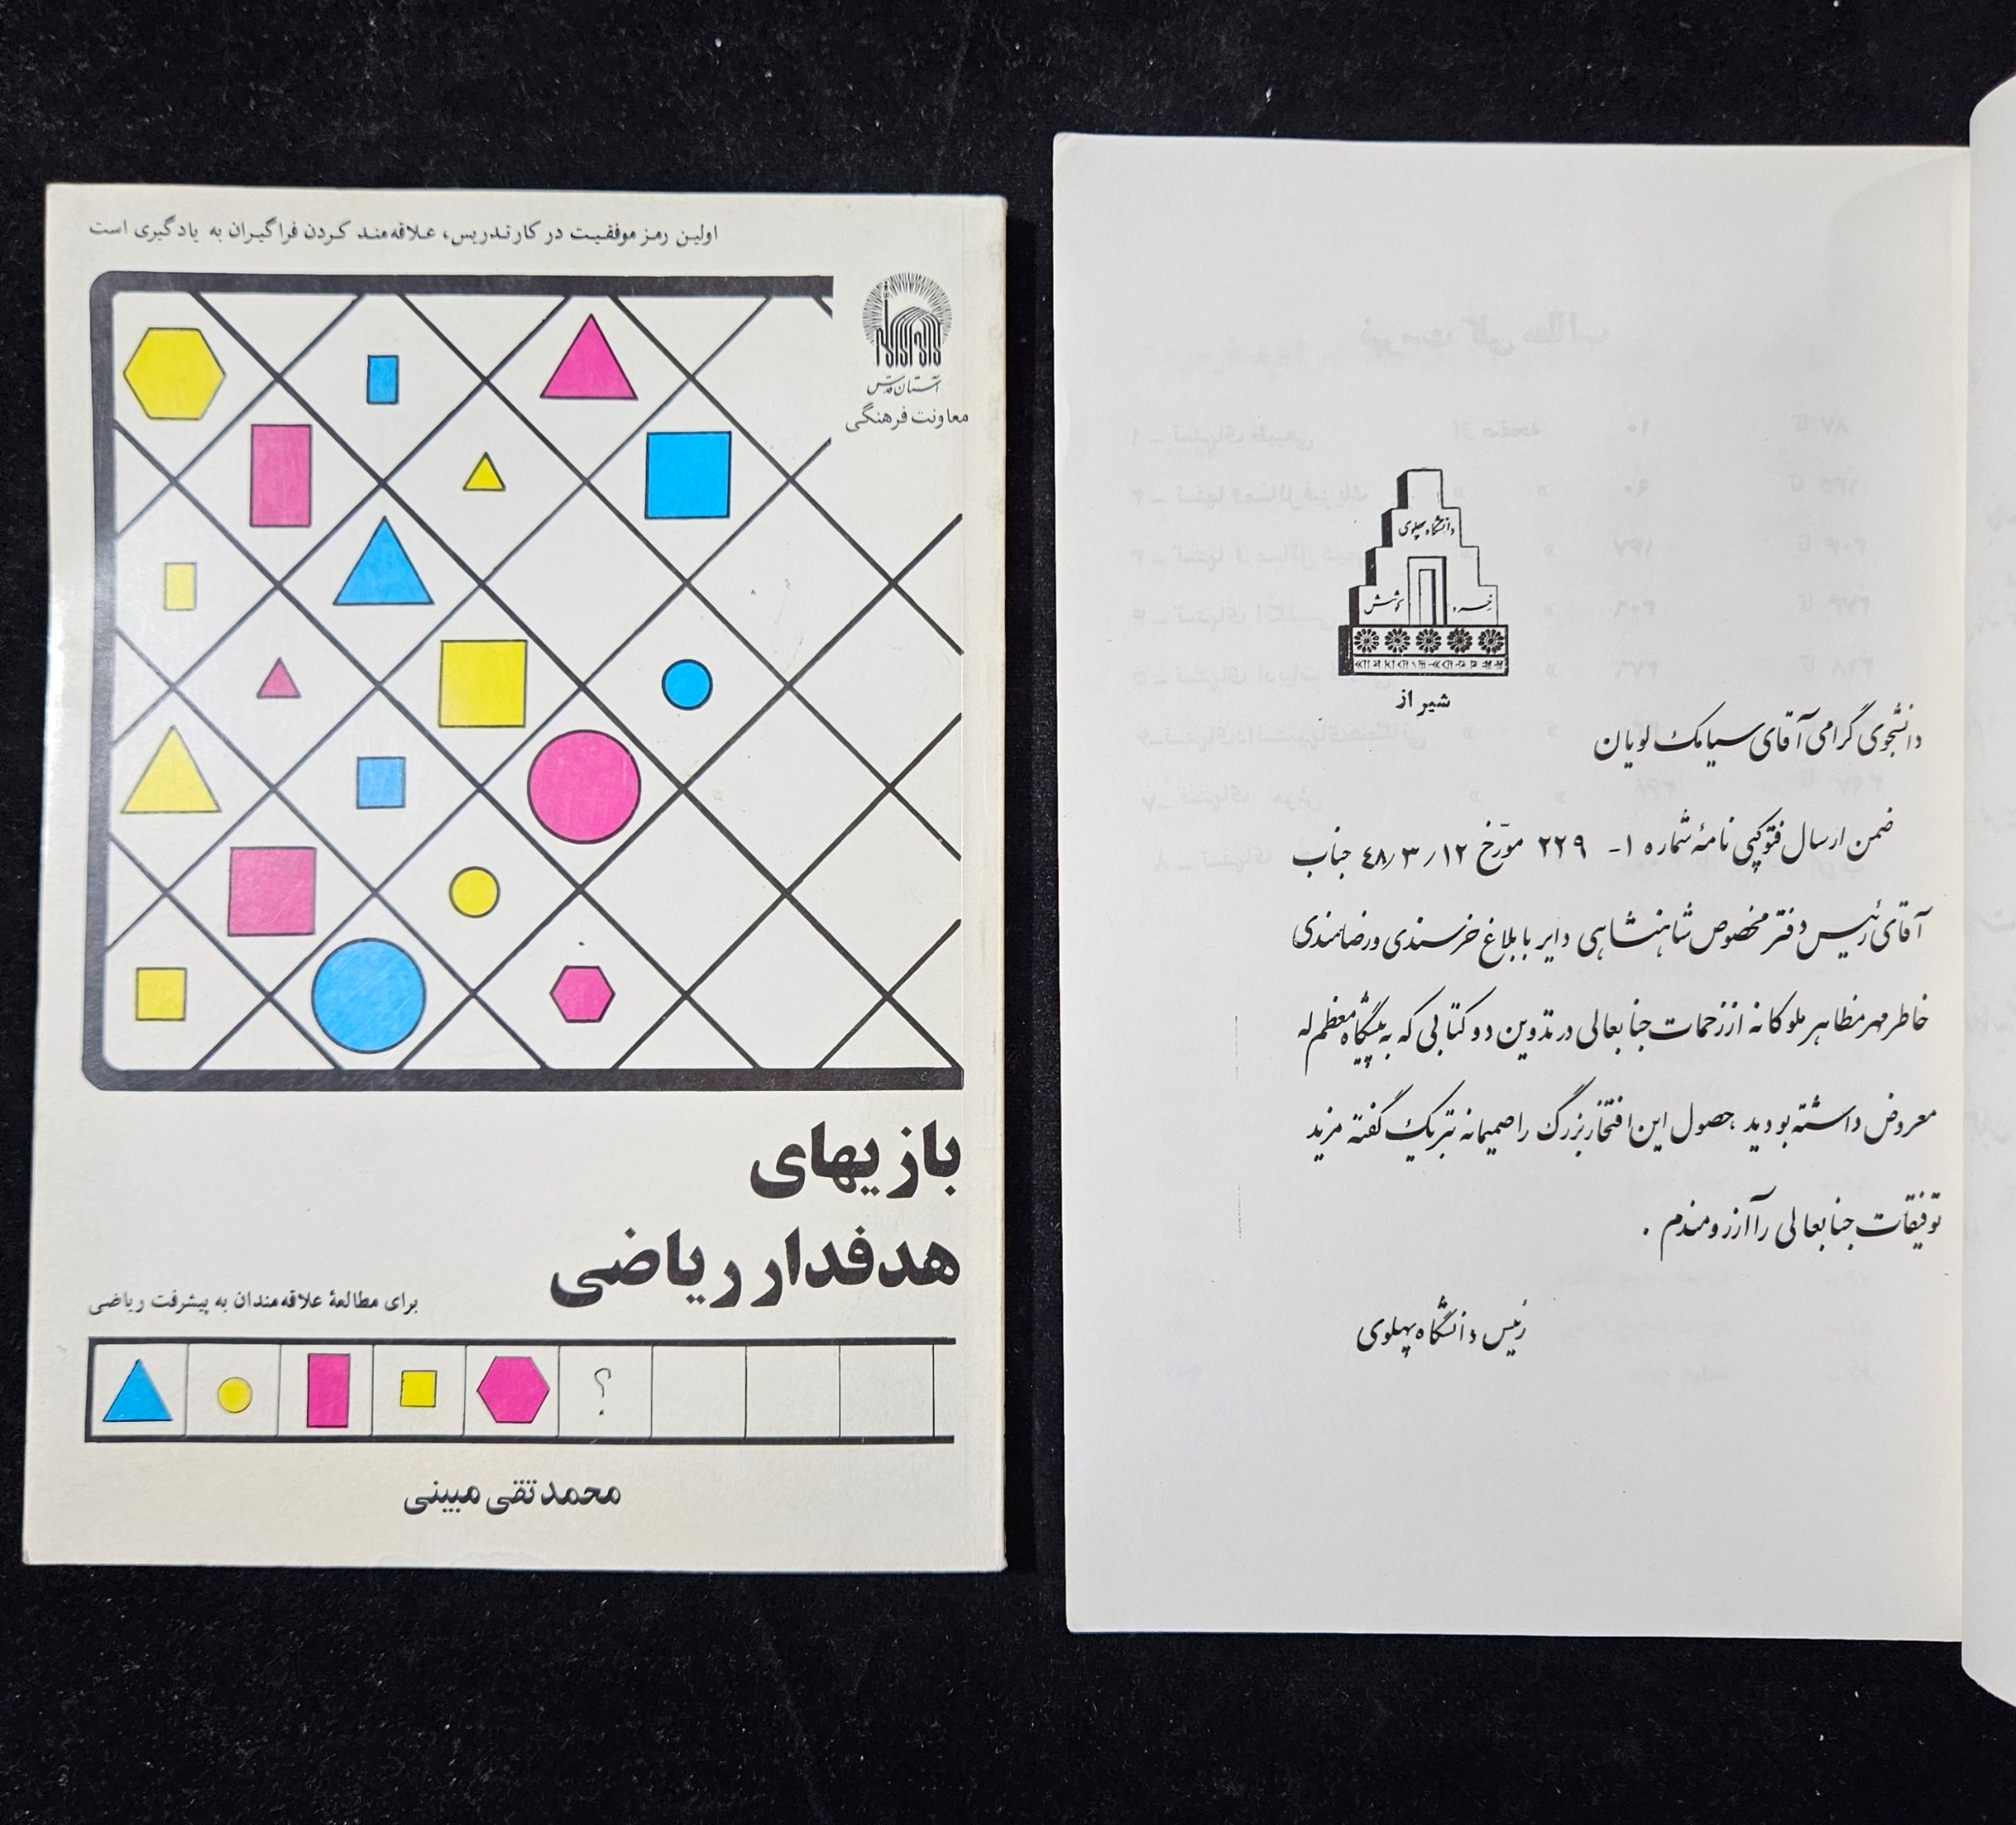 اولین رمز موفقیت در کار تدریس، علاقه‌مند کردن فراگیران به یادگیری است
آستان قدس
معاونت فرهنگی
بازیهای
هدفدار ریاضی
برای مطالعهٔ علاقه‌مندان به پیشرفت ریاضی
؟
محمد تقی مبینی
دانشگاه پهلوی
خرد کوشش
شیراز
دانشجوی گرامی آقای سیامک لویان
ضمن ارسال فتوکپی نامهٔ شماره ۱- ۲۲۹ مورّخ ۴۸/۳/۱۲ جناب
آقای رئیس دفتر مخصوص شاهنشاهی دایر بابلاغ خرسندی و رضامندی
خاطر مهر مظاهر ملوکانه از زحمات جنابعالی در تدوین دو کتابی که به پیشگاه معظم له
معروض داشته بودید، حصول این افتخار بزرگ را صمیمانه تبریک گفته مزید
توفیقات جنابعالی را آرزومندم .
رئیس دانشگاه پهلوی